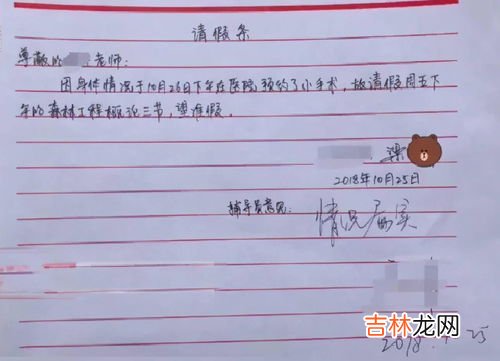 请假条
尊敬的 老师：
因身体情况于10月26日下午在医院预约了小手术，故请假周五下
午的森林工程概论三节，望准假。
梁
2018年10月25日
辅导员意见：
情况属实
2018. 25
吉林龙网